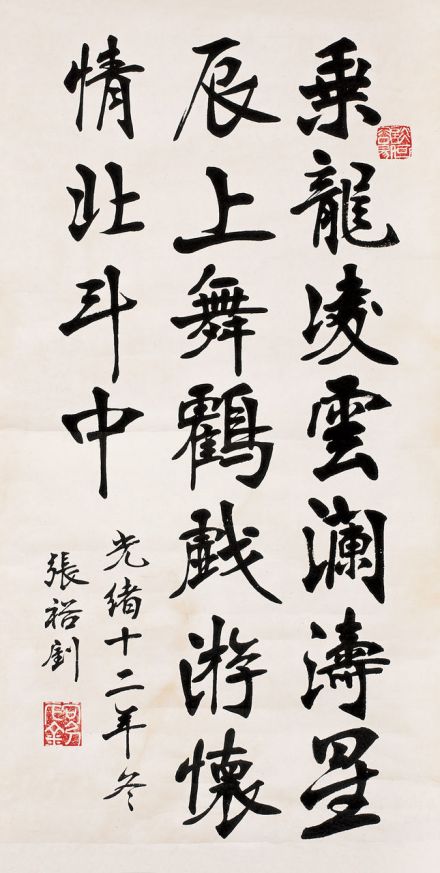 乗龍凌雲瀾濤星
辰上舞鶴戯游懐
情北斗中
光緒十二年冬
張裕釗